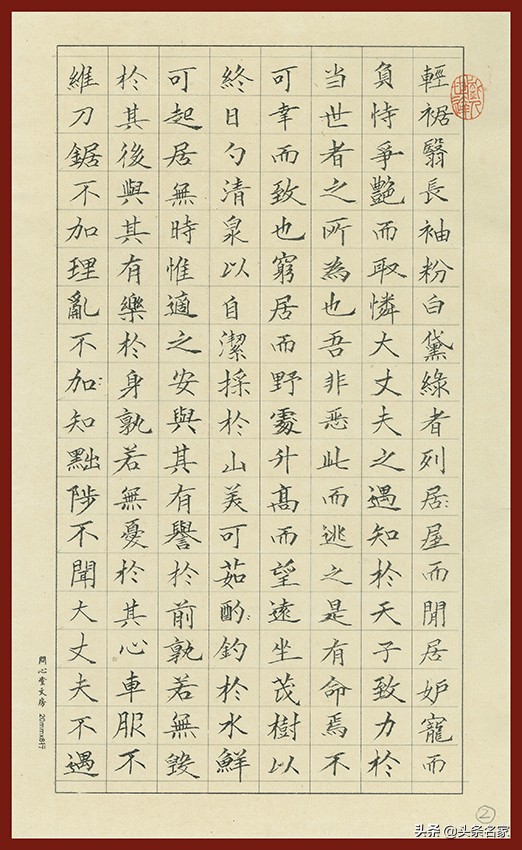 輕裾翳長袖粉白黛綠者列居屋而閒居妒寵而
負恃爭艷而取憐大丈夫之遇知於天子致力於
当世者之所為也吾非惡此而逃之是有命焉不
可幸而致也窮居而野處升髙而望遠坐茂樹以
終日勺清泉以自潔採於山美可茹酌釣於水鮮
可起居無時惟適之安與其有譽於前孰若無毀
於其後與其有樂於身孰若無憂於其心車服不
維刀鋸不加理亂不加知黜陟不聞大丈夫不遇
②
头条 @头条名家